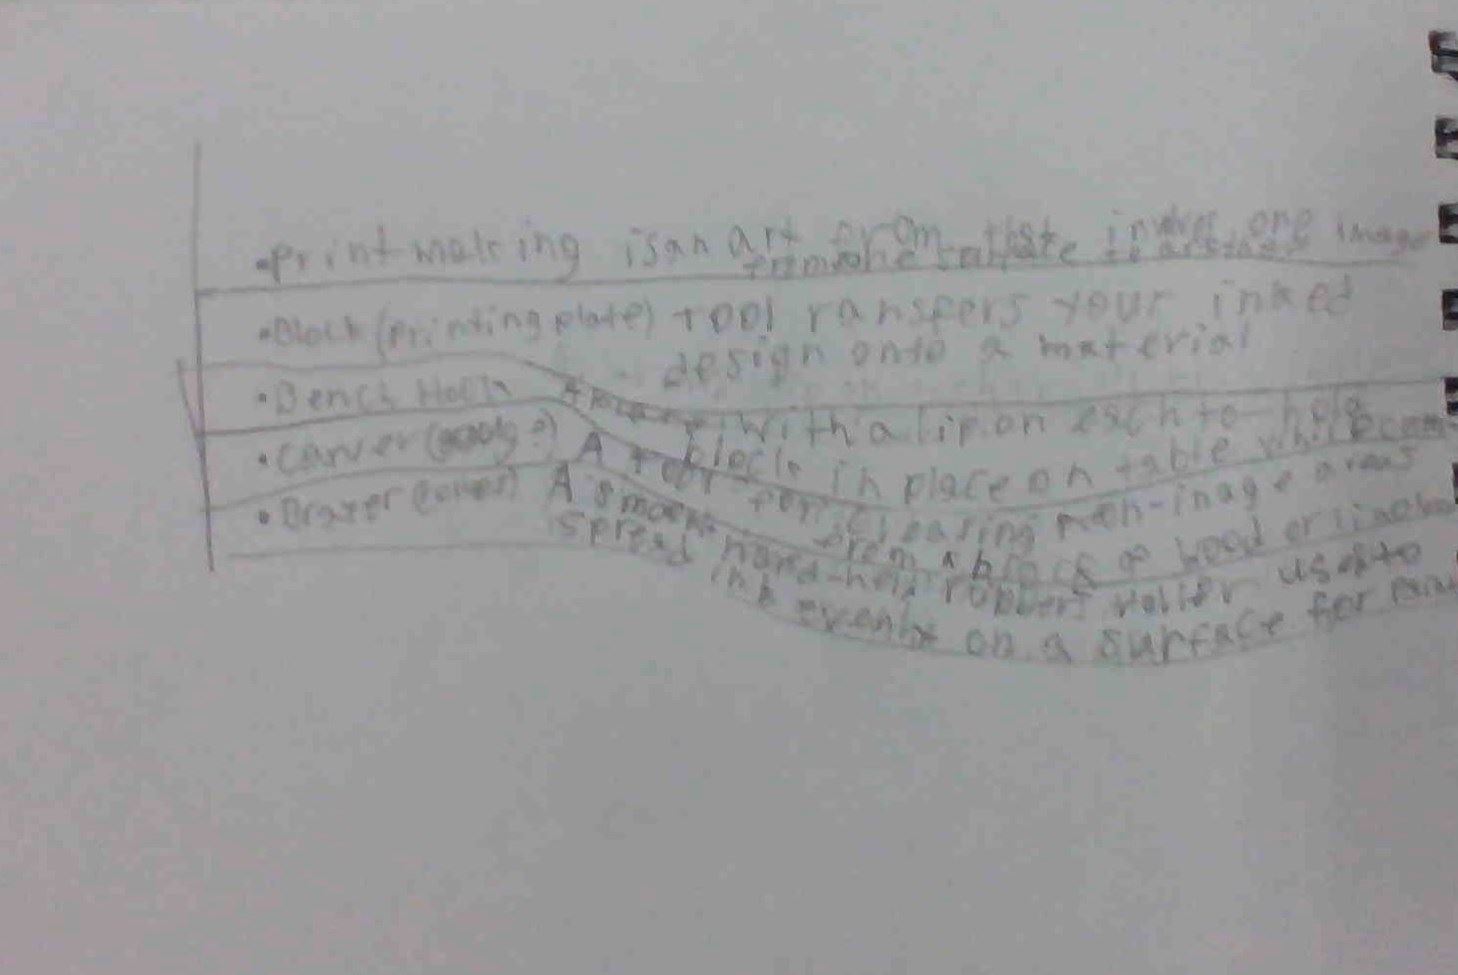 •Printmaking is an art from that involves one image
from one surface to another
•Block (printing plate) tool ransfers your inked
design onto a material
•Bench Hock A with a lip on each to hold
block in place on table while
•Carver (gouge) A tool for clearing non-image areas
from a block of wood or
•Brayer A small hand-held rubber roller used to
spread ink evenly on a surface for